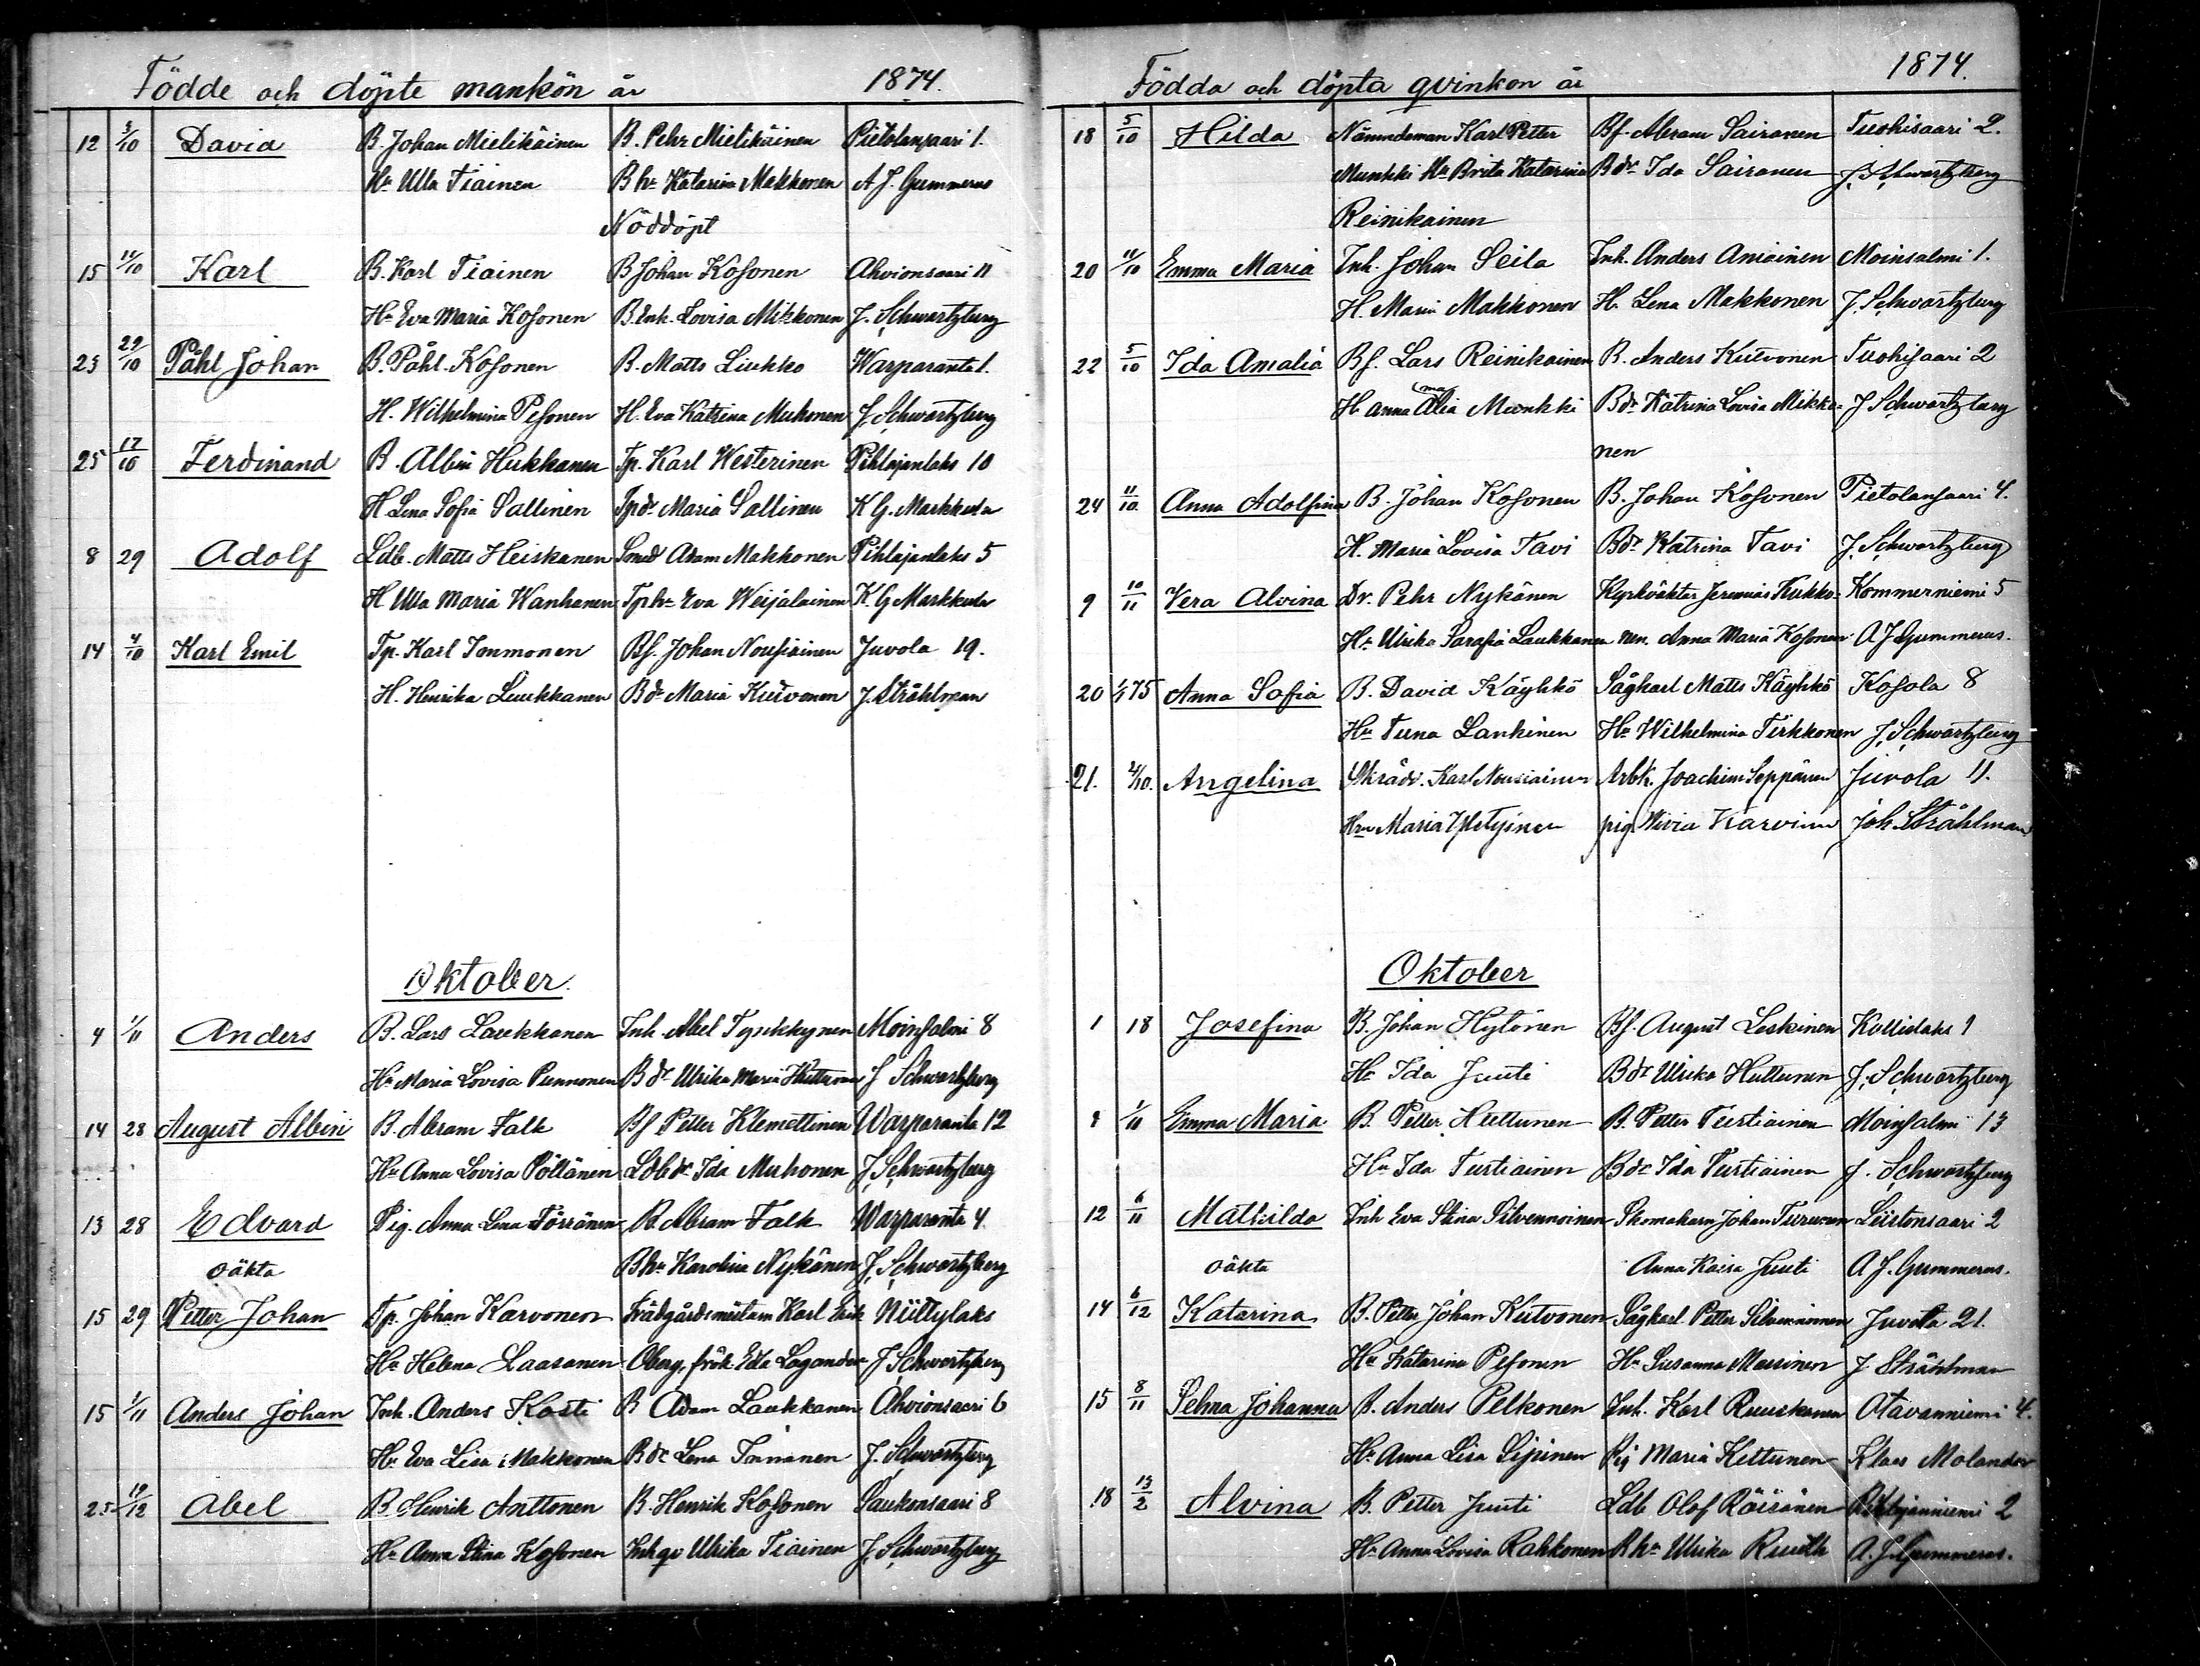 Födde och döpte mankön år 1874.
12 5/10 David B. Johan Mielikäinen B. Pehr Mielikäinen Pietolansaari 1.
Hu Ulla Tiainen Bhu Katarina Makkonen A J. Gummerus
Nöddöpt
15 11/10 Karl B. Karl Tiainen B Johan Kosonen Ahvionsaari 11
Hu Eva Maria Kosonen B.Enk. Lovisa Mikkonen J. Schwartzberg
23 29/10 Påhl Johan B. Påhl Kosonen B. Matts Liukko Warparanta 1.
H. Wilhelmina Pesonen H. Eva Katrina Muhonen J. Schwartzberg
25 17/10 Ferdinand B. Albin Hukkanen Tp. Karl Westerinen Pihlajanlaks 10
H Lena Sofia Sallinen Tpdr Maria Sallinen K G. Markkula
8 29 Adolf Ldb. Matts Heiskanen Adam Makkonen Pihlajanlaks 5
H Ulla Maria Wanhanen Tphu Eva Weijalainen K. G Markkula
14 4/10 Karl Emil Tp. Karl Immonen Bf. Johan Nousiainen Juvola 19.
H. Henrika Luukkanen Bdr Maria Kutvonen J. Stråhlman
Oktober.
4 1/11 Anders B. Lars Laukkanen Inh. Abel Tynkkynen Moinsalmi 8
Hu Maria Lovisa Punnonen Bdr Ulrika Maria Huttunen J Schwartzberg
14 28 August Albin B. Abram Falk Bf Petter Klemettinen Warparanta 12
Hu Anna Lovisa Pöllänen Ldbdr Ida Muhonen J. Schwartzberg
13 28 Edvard Pig. Anna Lena Törrönen B. Abram Falk Warparanta 4
oäkta Bhu Karolina Nykänen J. Schwartzberg
15 29 Petter Johan Tp. Johan Karvonen Trädgårdsmästam Karl Erik Niittylaks
Hu Helena Laasanen Oberg, frök Eda Lagander J. Schwartzberg
15 1/11 Anders Johan Inh. Anders Kosti B Adam Laukkanen Ahvionsaari 6
Hu Eva Lisa Makkonen Bdr Lena Immonen J. Schwartzberg
25 19/12 Abel B Henrik Anttonen B. Henrik Kosonen Saukonsaari 8
Hu Anna Stina Kosonen Inhqv Ulrika Tiainen J. Schwartzberg
Födda och döpta qvinkön år 1874.
18 5/10 Hilda Nämndeman Karl Petter Bf. Abram Sairanen Tuohisaari 2.
Munkki Hu Brita Katarina Bdr Ida Sairanen J. Schwartzberg
Reinikainen
20 11/10 Emma Maria Inh. Johan Seila Inh. Anders Aniainen Moinsalmi 1.
H. Maria Makkonen H. Lena Makkonen J. Schwartzberg
22 5/10 Ida Amalia Bf. Lars Reinikainen B. Anders Kutvonen Tuohisaari 2
H. Anna Amalia Munkki Bdr Katrina Lovisa Mikko- J Schwartzberg
nen
24 11/10. Anna Adolfina B. Johan Kosonen B. Johan Kosonen Pietolansaari 4.
H. Maria Lovisa Tavi Bdr Katrina Tavi J. Schwartzberg
9 10/11 Vera Alvina Dr. Pehr Nykänen Kyrkväkter Jeremias Kukko- Kommerniemi 5
Hu Ulrika Sarafia Laukkanen nen. Anna Maria Kosonen A J Gummerus.
20 1/1 75 Anna Sofia B. David Käyhkö Sågkarl Matts Käyhkö Kosola 8
Hu Tiina Lankinen Hu Wilhelmina Tirkkonen J. Schwartzberg
21. 4/10. Angelina Skrädd. Karl Nousiainen Arbk. Joachim Seppänen Juvola 11.
Hu Maria pig Karvinen Joh. Stråhlman
Oktober
1 18 Josefina B. Johan Hytönen Bf. August Leskinen Kallislaks 1
Hu Ida Juuti Bdr Ulrika Huttunen J. Schwartzberg
8 1/11 Emma Maria B. Petter Huttunen B. Petter Turtiainen Moinsalmi 13
Hu Ida Turtiainen Bdr Ida Turtiainen J. Schwartzberg
12 6/11 Mathilda Inh Eva Stina Silvennoinen Skomakarn Johan Turunen Liistonsaari 2
oäkta Anna Kaisa Juuti A J. Gummerus.
14 6/12 Katarina B. Petter Johan Kutvonen Sågkarl Petter Silvennoinen Juvola 21.
Hu Katarina Pesonen Hu Susanna Massinen J Stråhlman
15 8/11 Selma Johanna B. Anders Pelkonen Inh. Karl Ruuskanen Otavanniemi 4.
Hu Anna Lisa Sipinen Pig Maria Kettunen Klaes Molander
18 13/2 Alvina B. Petter Juuti Ldb Olof Räisänen Pihlajaniemi 2
Hu Anna Lovisa Rahkonen Bhu Ulrika Ruuth A. J. Gummerus.